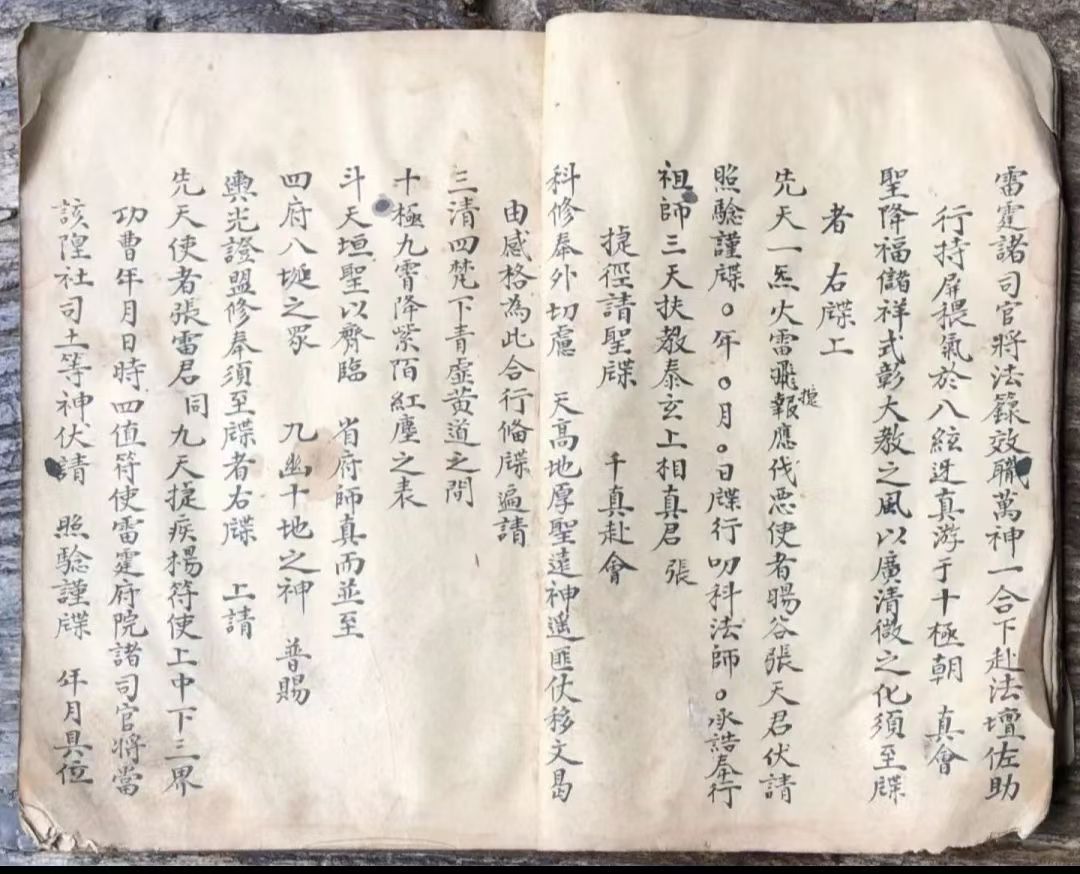 雷霆諸司官將法籙效職萬神一合下赴法壇佐助
行持屏猥氣於八紘迓真游于十極朝　真會
聖降福儲祥式彰大教之風以廣清微之化須至牒
者　右牒上
先天一炁火雷飛報應伐惡使者陽谷張天君伏請
捷
照驗謹牒○年○月○日牒行叨科法師○承誥奉行
祖師三天扶教泰玄上相真君　張
捷徑請聖牒　　千真赴會
科修奉外切慮　天高地厚聖遠神遥匪仗移文曷
由感格為此合行備牒遍請
三清四梵下青虛黃道之間
十極九霄降紫陌紅塵之表
斗天垣聖以齊臨　省府師真而並至
四府八埏之眾　九幽十地之神　普賜
輿光證盟修奉須至牒者右牒　上請
先天使者張雷君同九天捷疾楊符使上中下三界
功曹年月日時四值符使雷霆府院諸司官將當
該隍社司土等神伏請　照驗謹牒　年月具位